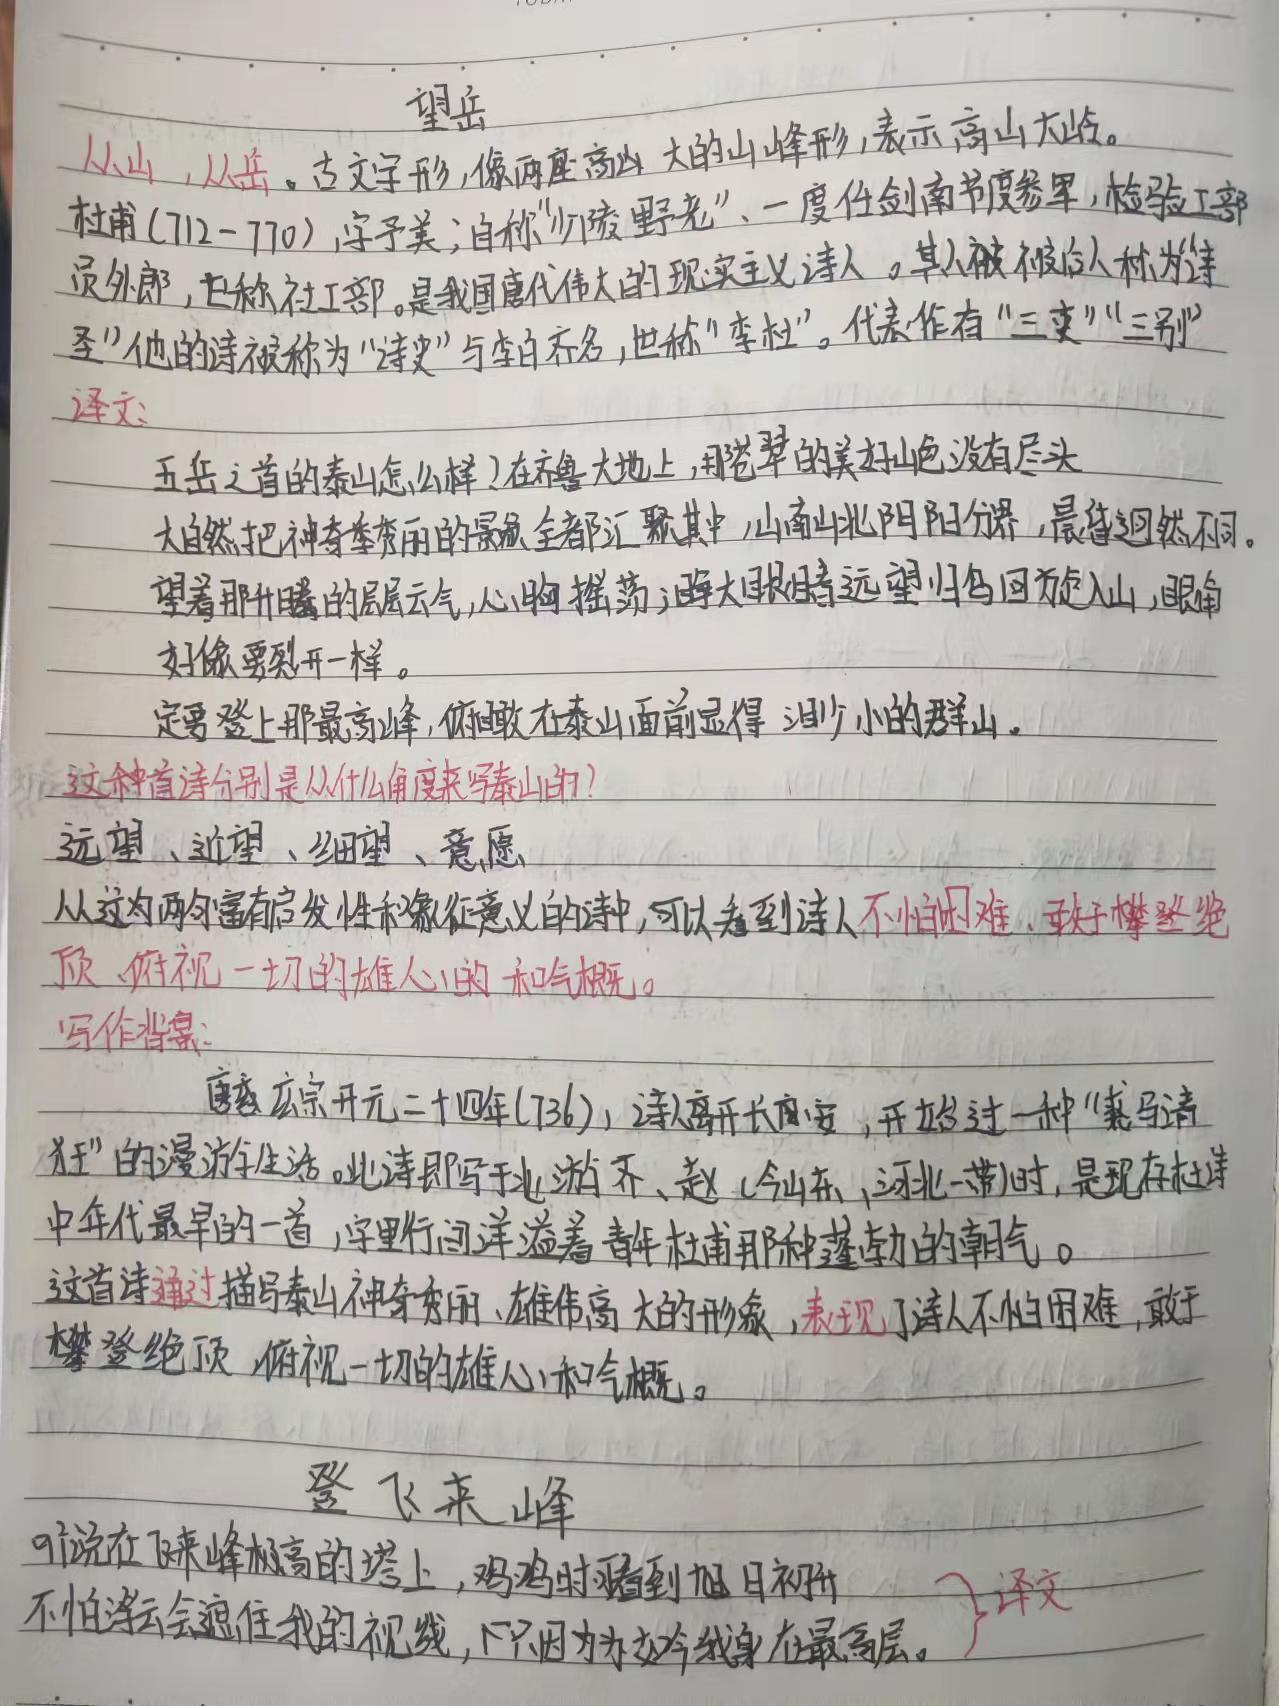 望岳
从山,从岳。古文字形,像两座高山 大的山峰形,表示高山大岭。
杜甫(712-770),字子美;自称“少陵野老”、一度任剑南节度参军,检验工部
员外郎,世称社工部。是我国唐代伟大的现实主义诗人。其人被 被后人称为“诗
圣”他的诗被称为“诗史”与李白齐名,世称“李杜”。代表作有“三吏”“三别”
译文:
五岳之首的泰山怎么样?在齐鲁大地上,那苍翠的美好山色没有尽头
大自然把神奇秀丽的景象全都汇聚其中,山南山北阴阳分界,晨昏迥然不同。
望着那升腾的层层云气,心胸摇荡;睁大眼睛远望归鸟回旋入山,眼角
好像要裂开一样。
定要登上那最高峰,俯瞰在泰山面前显得 渺小的群山。
这种首诗分别是从什么角度来写泰山的?
远望、近望、细望、意愿
从这为两句富有启发性和象征意义的诗中,可以看到诗人不怕困难、敢于攀登绝
顶、俯视一切的雄心的 和气概。
写作背景:
唐玄宗开元二十四年(736),诗人离开长安,开始过一种“裘马清
狂”的漫游生活。此诗即写于北游齐、赵(今山东、河北一带)时,是现存杜诗
中年代最早的一首,字里行间洋溢着青年杜甫那种蓬勃的朝气。
这首诗通过描写泰山神奇秀丽、雄伟高大的形象,表现了诗人不怕困难,敢于
攀登绝顶,俯视一切的雄心和气概。
登飞来峰
听说在飞来峰极高的塔上,鸡鸣时看到旭日初升
不怕浮云会遮住我的视线,只因为如今我身在最高层。
译文